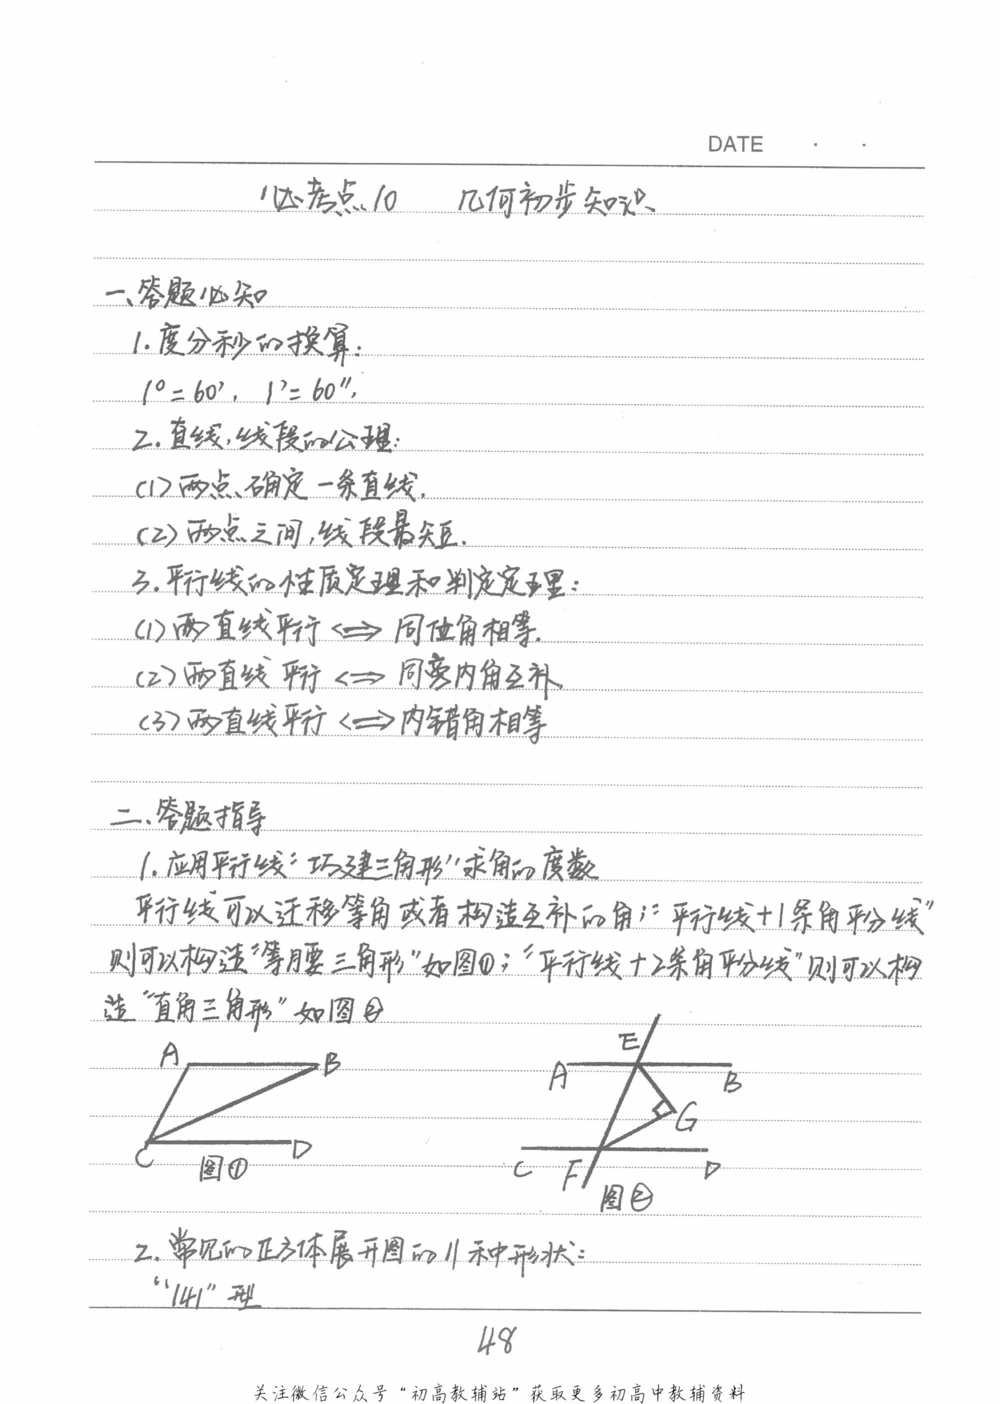 DATE · ·
必考点10 几何初步知识
一、答题必知
1.度分秒的换算:
1°=60′, 1′=60″.
2.直线,线段的公理:
(1)两点确定一条直线.
(2)两点之间,线段最短.
3.平行线的性质定理和判定定理:
(1)两直线平行<=>同位角相等.
(2)两直线平行<=>同旁内角互补.
(3)两直线平行<=>内错角相等
二、答题指导
1.应用平行线“巧建三角形”求角的度数
平行线可以迁移等角或者构造互补的角;“平行线+1条角平分线”
则可以构造“等腰三角形”如图①;“平行线+2条角平分线”则可以构
造“直角三角形”如图②
A B
C D
图①
E
A B
G
C F D
图②
2.常见的正方体展开图的11种形状:
“141”型
48
关注微信公众号“初高教辅站”获取更多初高中教辅资料